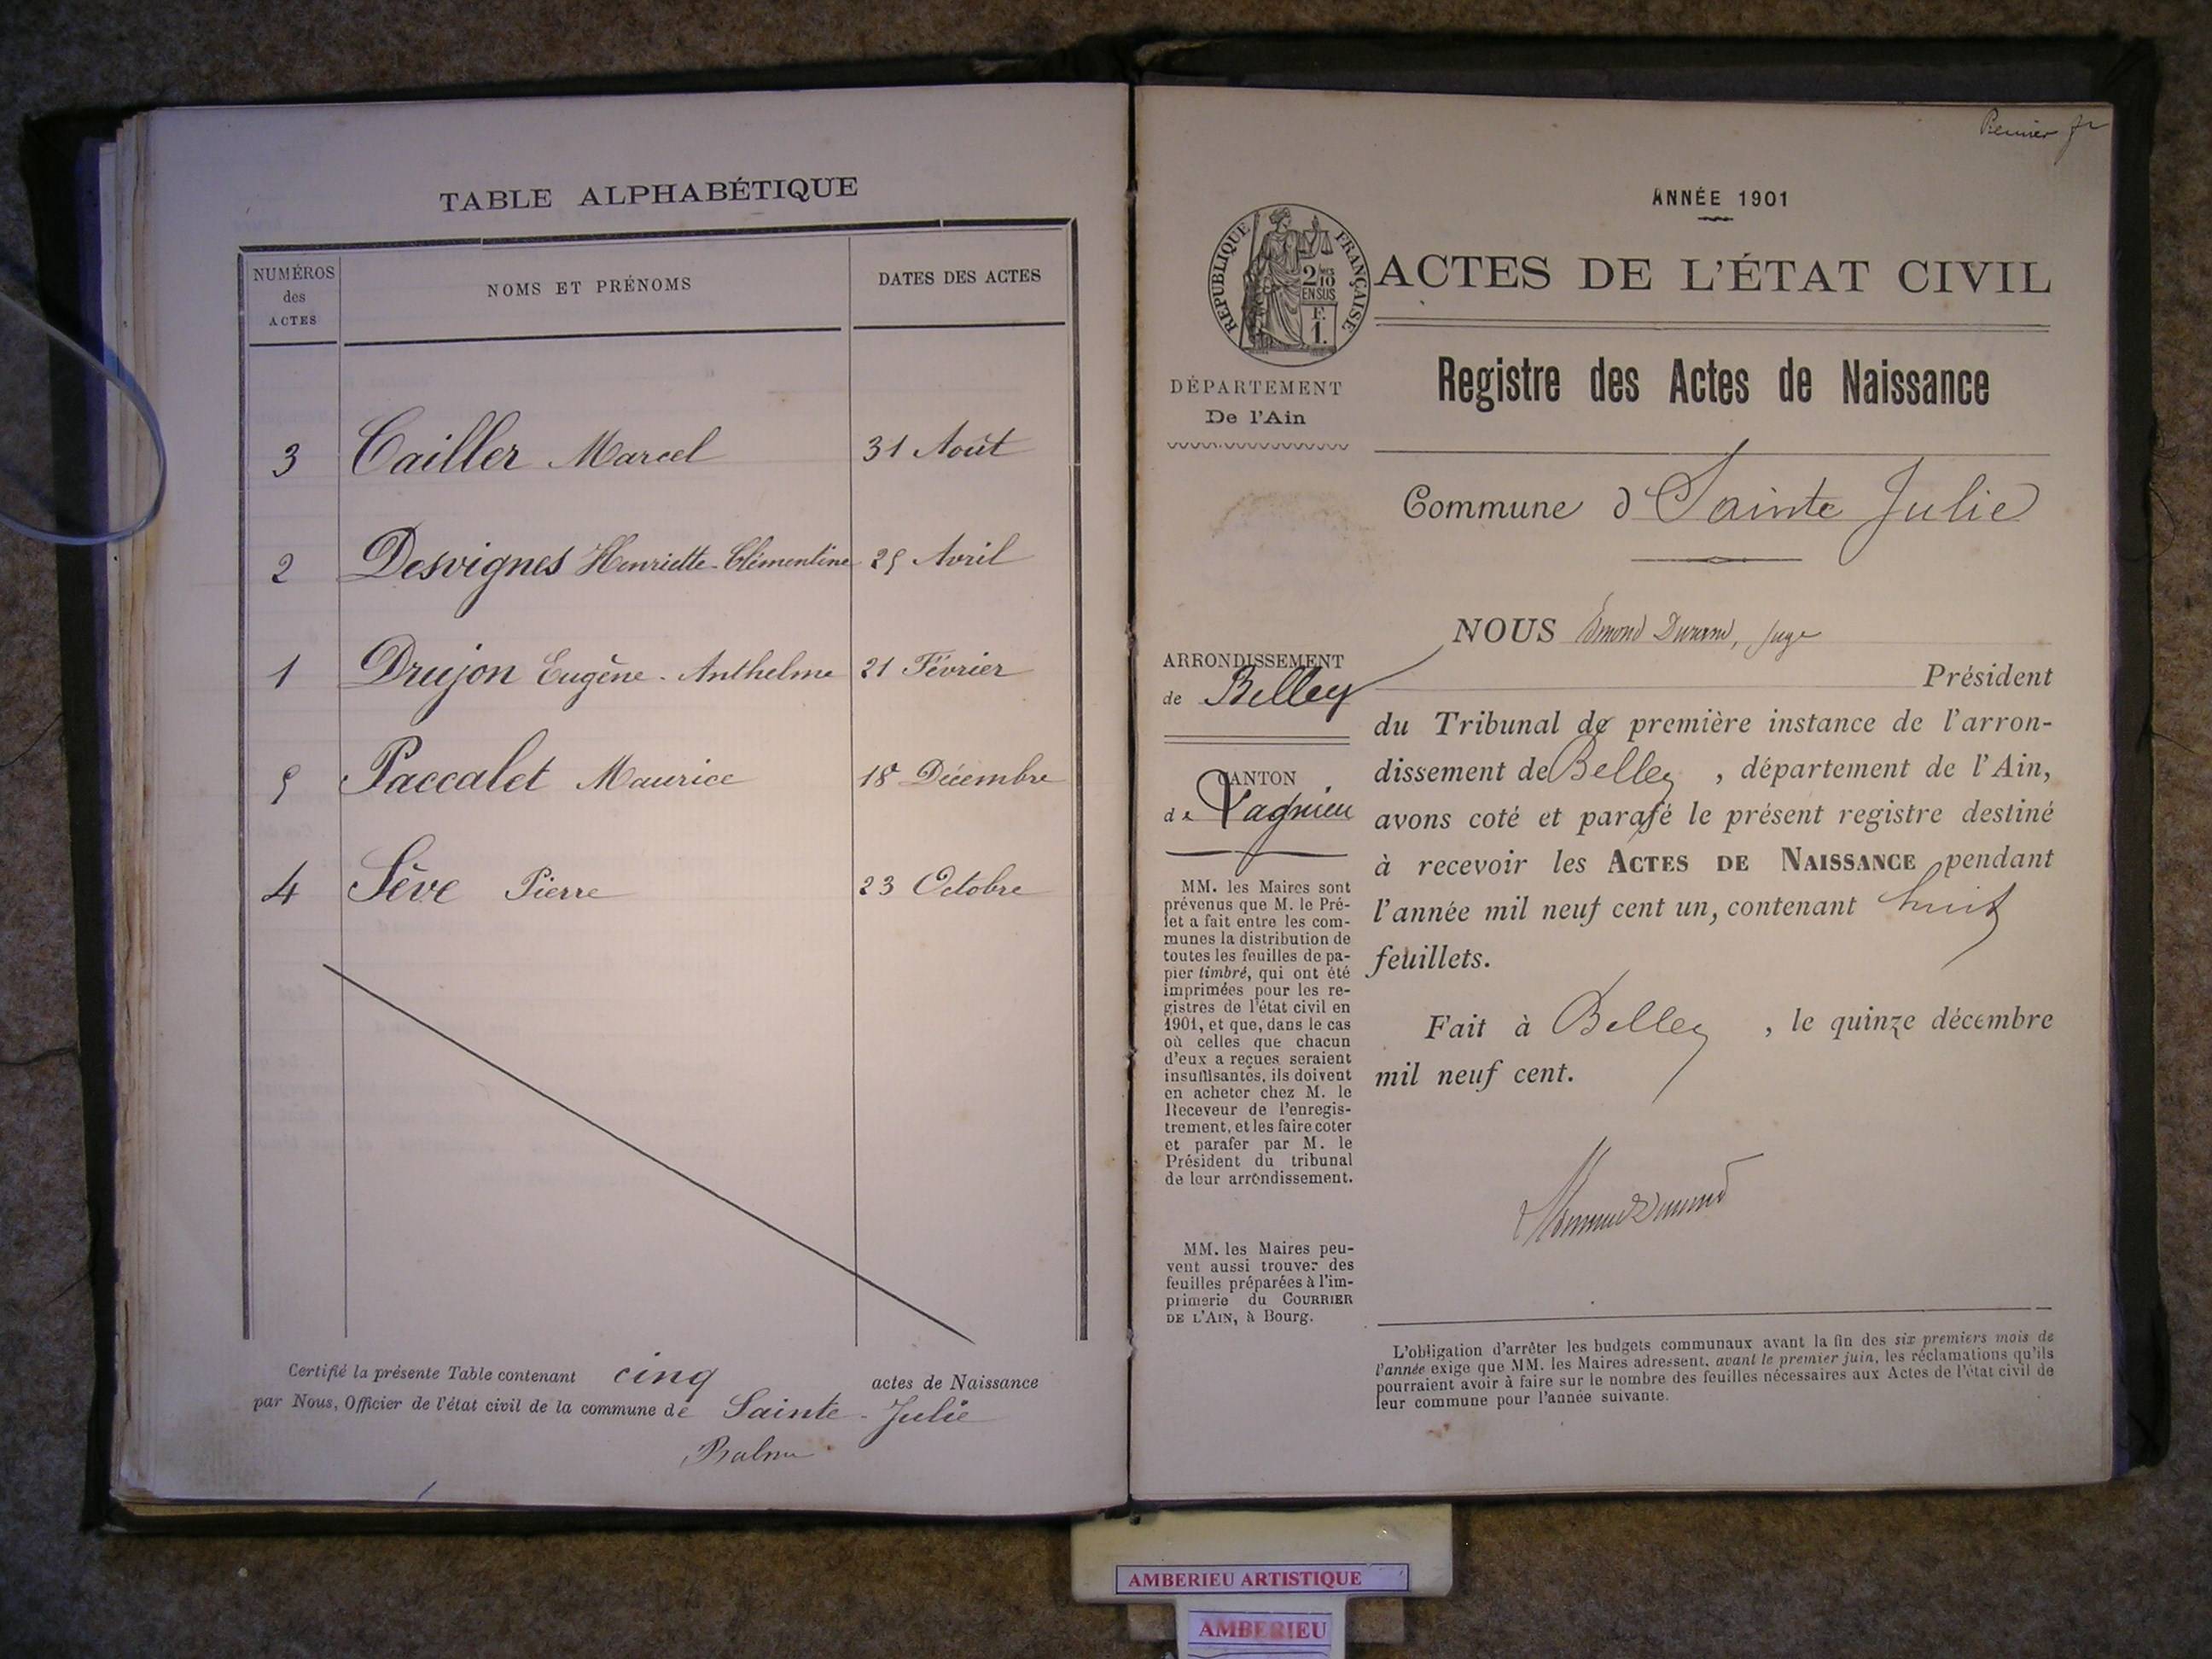 TABLE ALPHABÉTIQUE
NUMÉROS des ACTES
NOMS ET PRÉNOMS
DATES DES ACTES
3 Cailler Marcel 31 Août
2 Desvignes Henriette-Clémentine 25 Avril
1 Drujon Eugène-Anthelme 21 Février
5 Paccalet Maurice 18 Décembre
4 Sève Pierre 23 Octobre
Certifié la présente Table contenant cinq actes de Naissance
par Nous, Officier de l'état civil de la commune de Sainte-Julie
Balme
Premier
ANNÉE 1901
RÉPUBLIQUE FRANÇAISE
2/10 EN SUS
F. 1.
ACTES DE L'ÉTAT CIVIL
Registre des Actes de Naissance
DÉPARTEMENT
De l'Ain
Commune d Sainte Julie
ARRONDISSEMENT
de Belley
CANTON
de Lagnieu
MM. les Maires sont
prévenus que M. le Pré-
fet a fait entre les com-
munes la distribution de
toutes les feuilles de pa-
pier timbré, qui ont été
imprimées pour les re-
gistres de l'état civil en
1901, et que, dans le cas
où celles que chacun
d'eux a reçues seraient
insuffisantes, ils doivent
en acheter chez M. le
Receveur de l'enregis-
trement, et les faire coter
et parafer par M. le
Président du tribunal
de leur arrondissement.
MM. les Maires peu-
vent aussi trouver des
feuilles préparées à l'im-
primerie du COURRIER
DE L'AIN, à Bourg.
NOUS Edmond Durand, juge
Président
du Tribunal de première instance de l'arron-
dissement de Belley , département de l'Ain,
avons coté et parafé le présent registre destiné
à recevoir les ACTES DE NAISSANCE pendant
l'année mil neuf cent un, contenant huit
feuillets.
Fait à Belley , le quinze décembre
mil neuf cent.
L'obligation d'arrêter les budgets communaux avant la fin des six premiers mois de
l'année exige que MM. les Maires adressent, avant le premier juin, les réclamations qu'ils
pourraient avoir à faire sur le nombre des feuilles nécessaires aux Actes de l'état civil de
leur commune pour l'année suivante.
AMBERIEU ARTISTIQUE
AMBERIEU